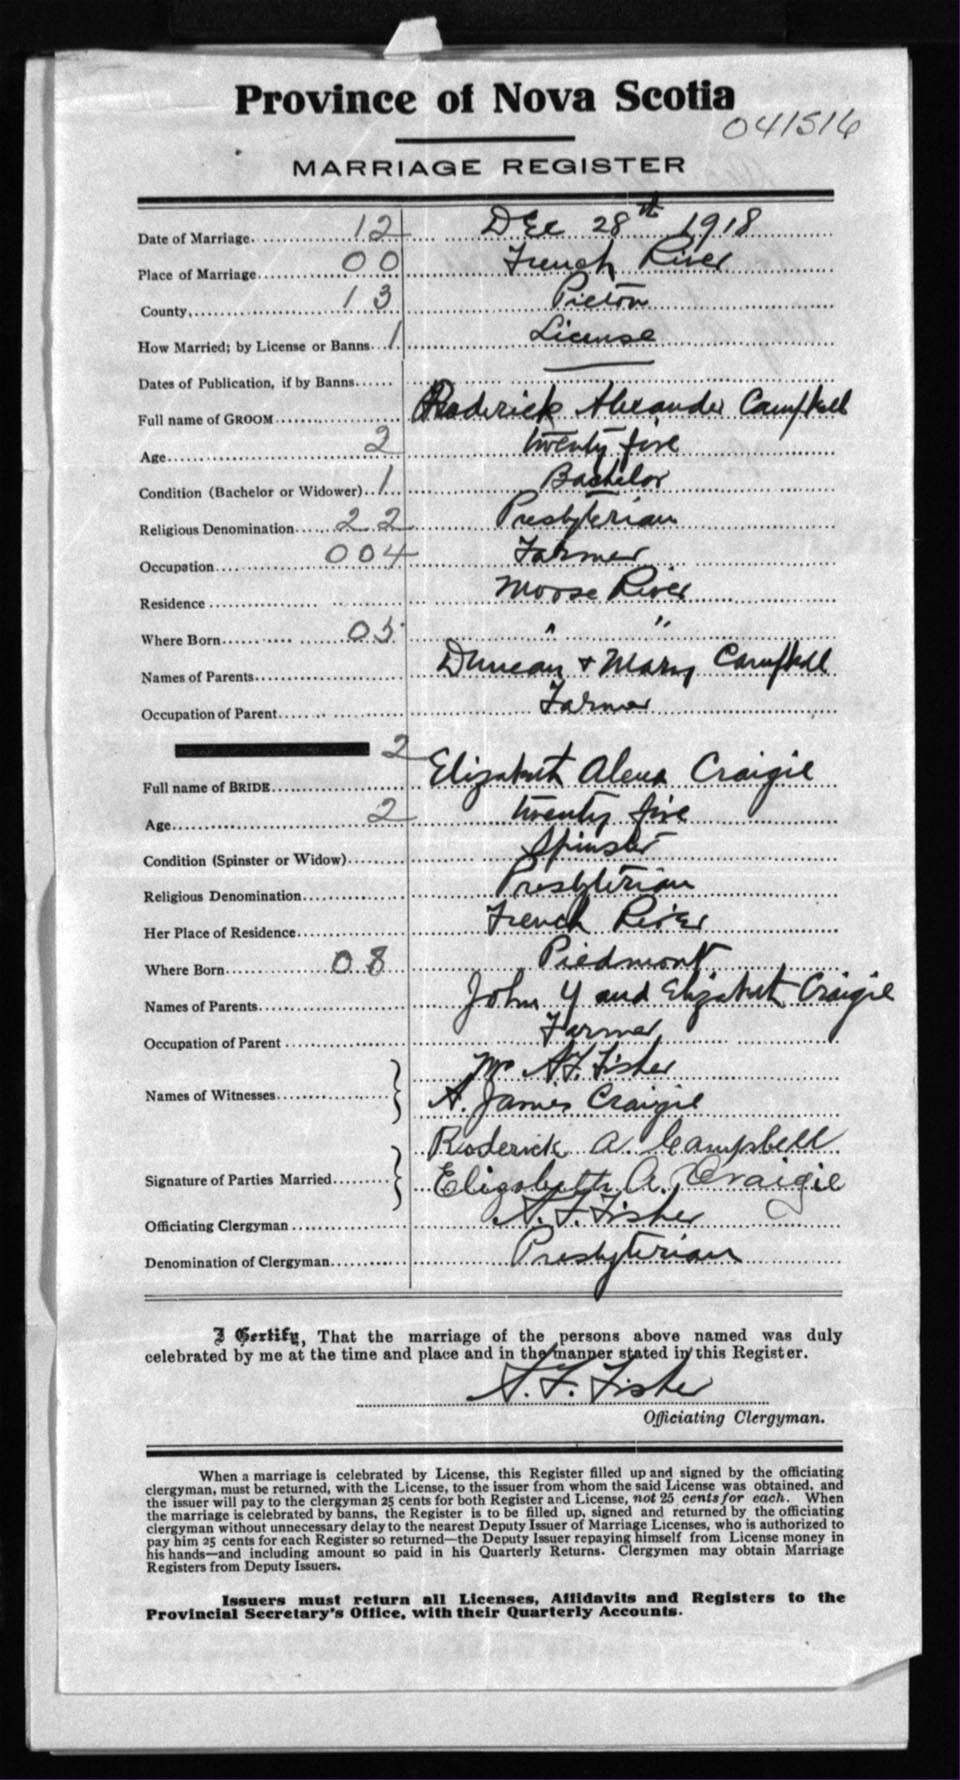 Province of Nova Scotia
041516
MARRIAGE REGISTER
Date of Marriage. 12 Dec 28th 1918
Place of Marriage 00 French River
County, 13 Pictou
How Married; by License or Banns 1 License
Dates of Publication, if by Banns
Full name of GROOM Roderick Alexander Campbell
Age 2 twenty five
Condition (Bachelor or Widower) 1 Bachelor
Religious Denomination 22 Presbyterian
Occupation 004 Farmer
Residence Moose River
Where Born 05 " "
Names of Parents Duncan + Mary Campbell
Occupation of Parent Farmer
2
Full name of BRIDE Elizabeth Alena Craigie
Age 2 twenty five
Condition (Spinster or Widow) Spinster
Religious Denomination Presbyterian
Her Place of Residence French River
Where Born 08 Piedmont
Names of Parents John Y and Elizabeth Craigie
Occupation of Parent Farmer
A.F. Fisher
Names of Witnesses A. James Craigie
Roderick A. Campbell
Signature of Parties Married Elizabeth A. Craigie
Officiating Clergyman A. F. Fisher
Denomination of Clergyman Presbyterian
I Certify, That the marriage of the persons above named was duly
celebrated by me at the time and place and in the manner stated in this Register.
A. F. Fisher
Officiating Clergyman.
When a marriage is celebrated by License, this Register filled up and signed by the officiating
clergyman, must be returned, with the License, to the issuer from whom the said License was obtained, and
the issuer will pay to the clergyman 25 cents for both Register and License, not 25 cents for each. When
the marriage is celebrated by banns, the Register is to be filled up, signed and returned by the officiating
clergyman without unnecessary delay to the nearest Deputy Issuer of Marriage Licenses, who is authorized to
pay him 25 cents for each Register so returned—the Deputy Issuer repaying himself from License money in
his hands—and including amount so paid in his Quarterly Returns. Clergymen may obtain Marriage
Registers from Deputy Issuers.
Issuers must return all Licenses, Affidavits and Registers to the
Provincial Secretary's Office, with their Quarterly Accounts.